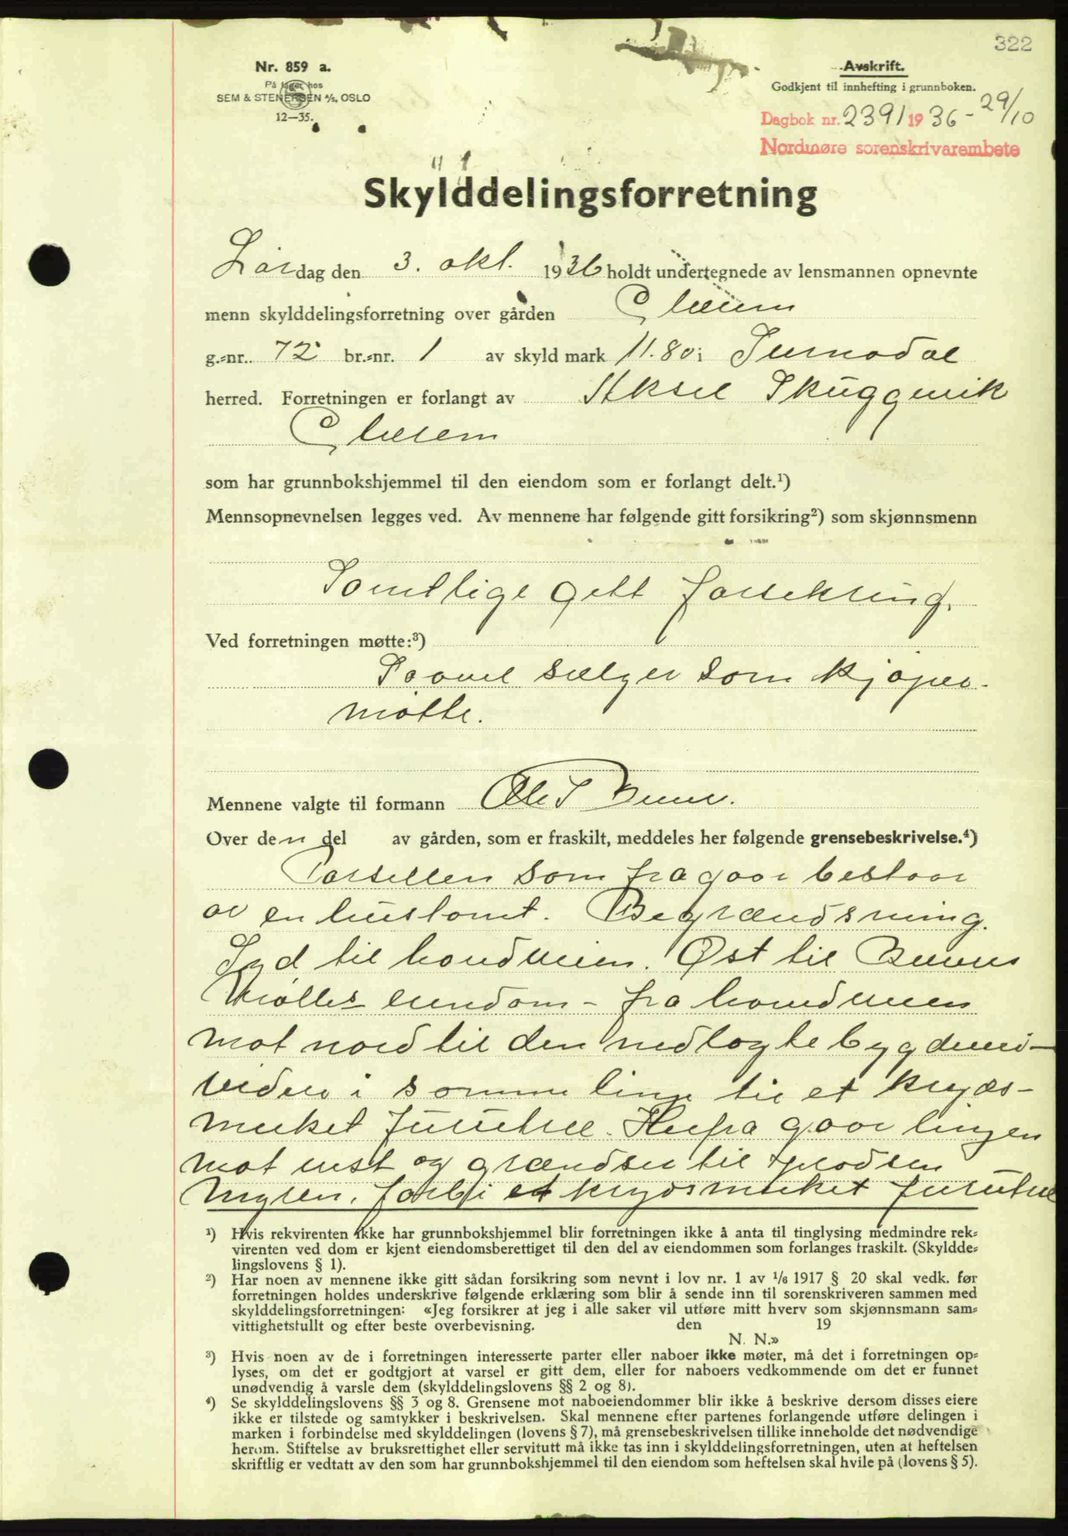 322
Nr. 859 a.
På lager hos
SEM & STENERSEN A/S, OSLO
12—35.
Avskrift.
Godkjent til innhefting i grunnboken.
Dagbok nr. 2391 1936 - 29/10
Nordmøre sorenskrivarembete
Skylddelingsforretning
Lørdag den 3. okt. 1936 holdt undertegnede av lensmannen opnevnte
menn skylddelingsforretning over gården Glærem
g.-nr. 72 br.-nr. 1 av skyld mark 11.80 i Surnadal
herred. Forretningen er forlangt av Aksel Skuggevik
Glærem
som har grunnbokshjemmel til den eiendom som er forlangt delt.¹)
Mennsopnevnelsen legges ved. Av mennene har følgende gitt forsikring²) som skjønnsmenn
Samtlige gitt forsikring.
Ved forretningen møtte:³)
Saavel sælger som kjøper
møtte.
Mennene valgte til formann Ole T Bævre.
Over den del av gården, som er fraskilt, meddeles her følgende grensebeskrivelse.⁴)
Parsellen som fragaar bestaar
av en hustomt. Begrændsning.
Syd til hovedveien. Øst til Bævers
Mølles eiendom - fra hovedveien
mot nord til den nedlagte bygdevei -
videre i samme linje til et kryds-
merket furutræ. Herfra gaar linjen
mot vest og grændser til
myren, forbi et krydsmerket furutræ
¹) Hvis rekvirenten ikke har grunnbokshjemmel blir forretningen ikke å anta til tinglysing medmindre rek-
virenten ved dom er kjent eiendomsberettiget til den del av eiendommen som forlanges fraskilt. (Skyldde-
lingslovens § 1).
²) Har noen av mennene ikke gitt sådan forsikring som nevnt i lov nr. 1 av 1/6 1917 § 20 skal vedk. før
forretningen holdes underskrive følgende erklæring som blir å sende inn til sorenskriveren sammen med
skylddelingsforretningen: «Jeg forsikrer at jeg i alle saker vil utføre mitt hverv som skjønnsmann sam-
vittighetsfullt og efter beste overbevisning. den 19
N. N.»
³) Hvis noen av de i forretningen interesserte parter eller naboer ikke møter, må det i forretningen op-
lyses, om det er godtgjort at varsel er gitt dem, eller for naboers vedkommende om det er funnet
unødvendig å varsle dem (skylddelingslovens §§ 2 og 8).
⁴) Se skylddelingslovens §§ 3 og 8. Grensene mot naboeiendommer blir ikke å beskrive dersom disses eiere
ikke er tilstede og samtykker i beskrivelsen. Skal mennene efter partenes forlangende utføre delingen i
marken i forbindelse med skylddelingen (lovens § 7), må grensebeskrivelsen tillike inneholde det nødvendige
herom. Stiftelse av bruksrettighet eller servitutt må ikke tas inn i skylddelingsforretningen, uten at heftelsen
skriftlig er vedtatt av den som har grunnbokshjemmel til den eiendom som heftelsen skal hvile på (lovens § 5).